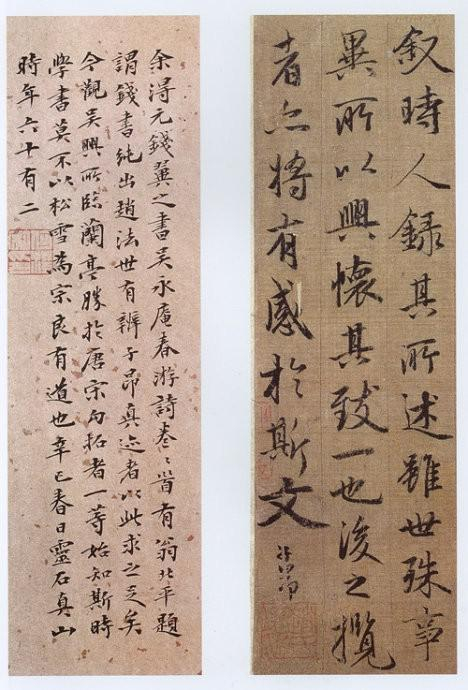 叙時人録其所述雖世殊事
異所以興懷其致一也後之攬
者亦將有感於斯文
子昂
余得元錢翼之書吳永庵春游詩卷〻首有翁北平題
謂錢書純出趙法世有辨子昂真迹者以此求之足矣
今觀吳興所臨蘭亭勝於唐宋勾拓者一等始知斯時
學書莫不以松雪為宗良有道也辛巳春日靈石真山
時年六十有二